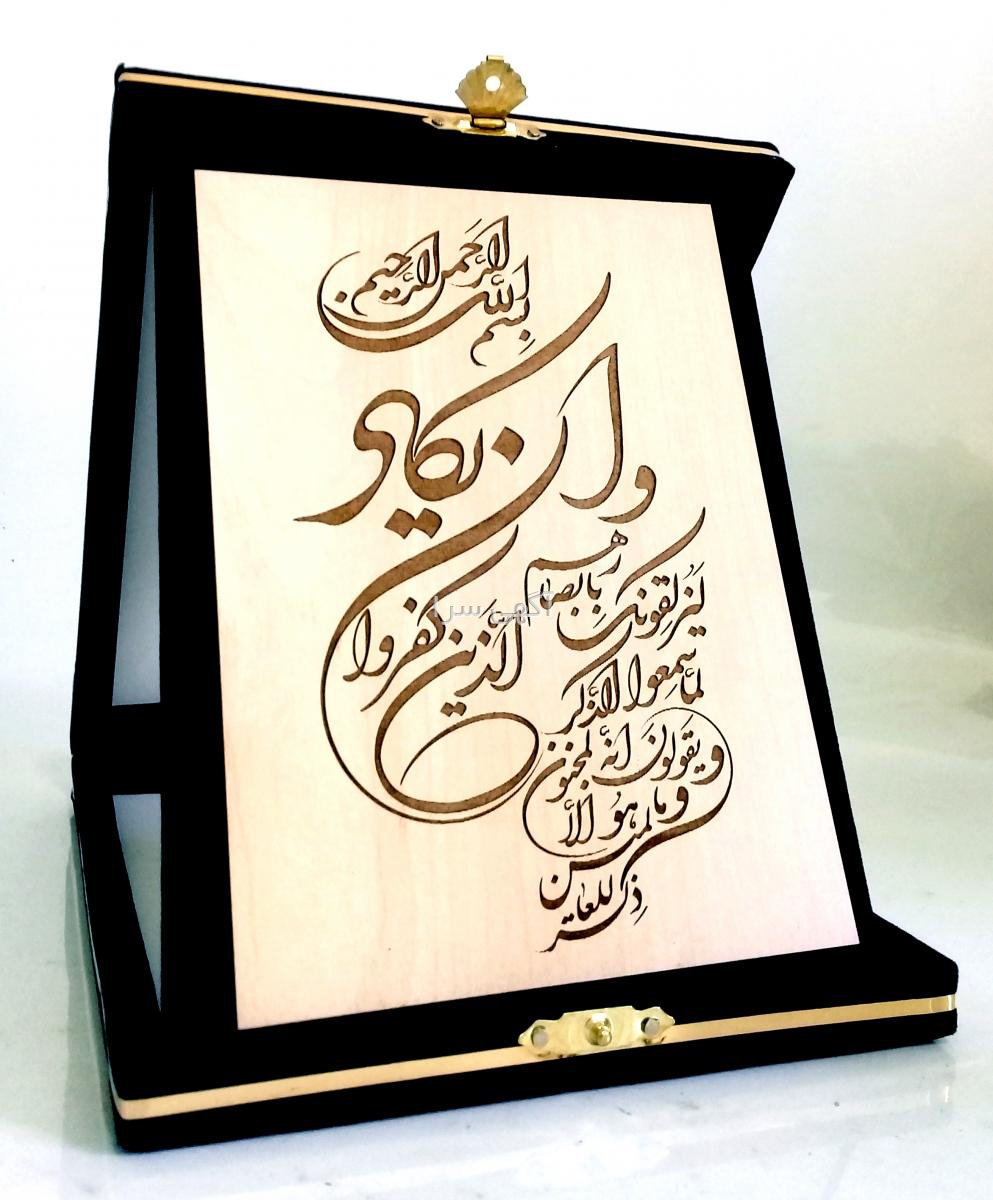 بسم الله الرحمن الرحیم
وان یکاد
الذین کفروا
لیزلقونک بابصارهم
لما سمعوا الذکر
ویقولون انه لمجنون
وما هو الا
ذکر للعالمین
آگهی سرا